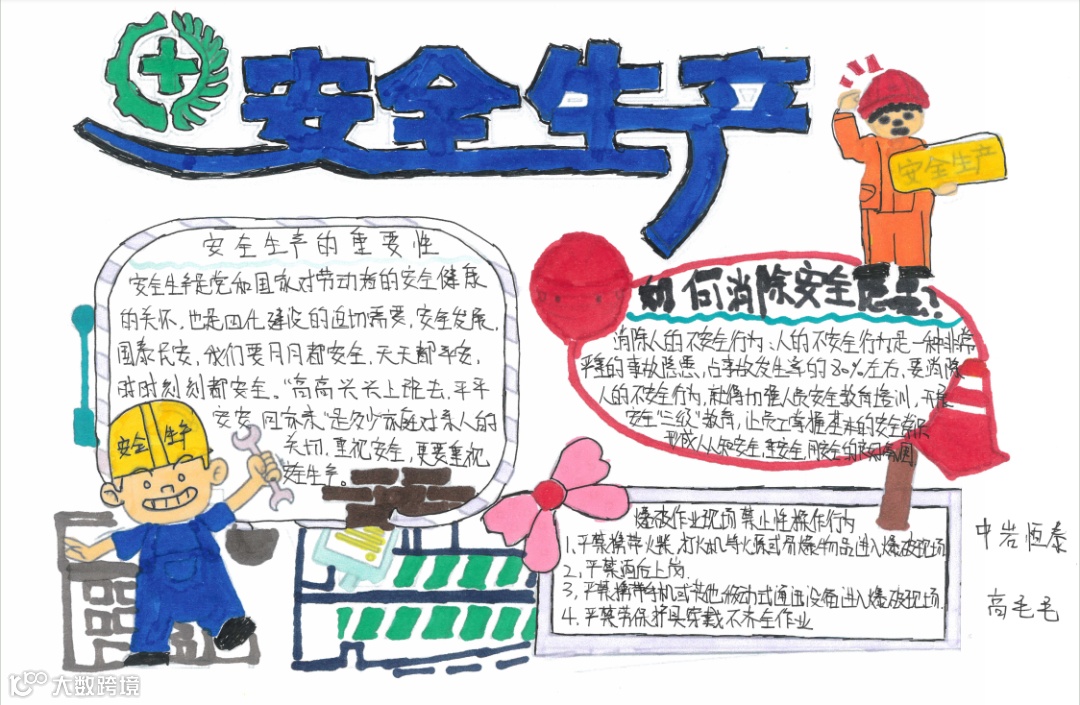 安全生产
安全生产
安全生产的重要性
安全生产是党和国家对劳动者的安全健康
的关怀,也是四化建设的迫切需要,安全发展,
国泰民安,我们要月月都安全,天天都平安,
时时刻刻都安全。“高高兴兴上班去,平平
安安回家来”是多少家庭对亲人的
关切,重视安全,更要重视
安全生产。
安全生产
如何消除安全隐患?
消除人的不安全行为:人的不安全行为是一种非常
严重的事故隐患,占事故发生率的80%左右,要消除
人的不安全行为,就得加强人员安全教育培训,开展
安全“三级”教育,让员工掌握基本的安全常识
形成人人知安全,重安全,用安全的氛围
爆破作业现场禁止性操作行为
1、严禁携带火柴、打火机等火源或易爆物品进入爆破现场
2、严禁酒后上岗
3、严禁携带手机或其他移动式通讯设备进入爆破现场.
4、严禁劳保护具穿戴不齐全作业
中岩恒泰
高毛毛
大数跨境